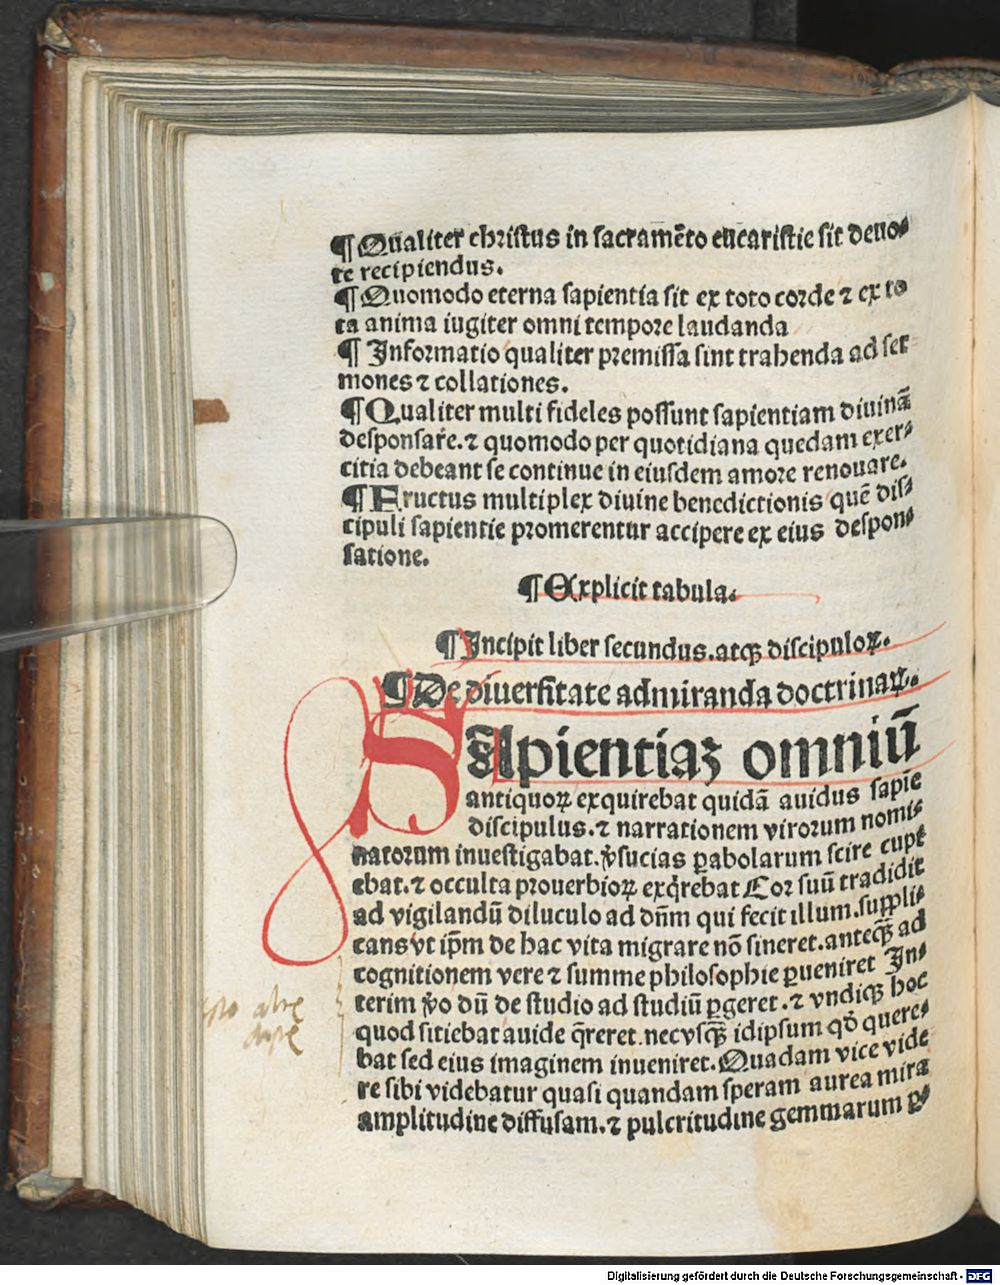 ¶ Qualiter christus in sacramēto eucaristie sit deuo⸗
te recipiendus.
¶ Quomodo eterna sapientia sit ex toto corde ⁊ ex to
ta anima iugiter omni tempore laudanda
¶ Informatio qualiter premissa sint trahenda ad ser
mones ⁊ collationes.
¶ Qualiter multi fideles possunt sapientiam diuinā
desponsare. ⁊ quomodo per quotidiana quedam exer⸗
citia debeant se continue in eiusdem amore renouare.
¶ Fructus multiplex diuine benedictionis quē dis⸗
cipuli sapientie promerentur accipere ex eius despon⸗
satione.
¶ Explicit tabula.
¶ Incipit liber secundus. atqꝫ discipuloꝝ.
¶ De diuersitate admiranda doctrinaꝝ.
SApientiaꝫ omniū
antiquoꝝ exquirebat quidā auidus sapiē
discipulus. ⁊ narrationem virorum nomi⸗
natorum inuestigabat. v̓sucias ꝑabolarum scire cupi
ebat. ⁊ occulta prouerbioꝝ exq̇rebat Cor suū tradidit
ad vigilandū diluculo ad dn̄m qui fecit illum. suppli⸗
cans vt ip̄m de hac vita migrare nō sineret. anteqꝫ̄ ad
cognitionem vere ⁊ summe philosophie ꝑueniret In⸗
terim v̓o dū de studio ad studiū ꝑgeret. ⁊ vndiqꝫ hoc
quod sitiebat auide q̄reret. nec vsqꝫ̄ idipsum qd̓ quere⸗
bat sed eius imaginem inueniret. Quadam vice vide
re sibi videbatur quasi quandam speram aurea mira
amplitudine diffusam. ⁊ pulcritudine gemmarum p̲⸗
Digitalisierung gefördert durch die Deutsche Forschungsgemeinschaft - DFG